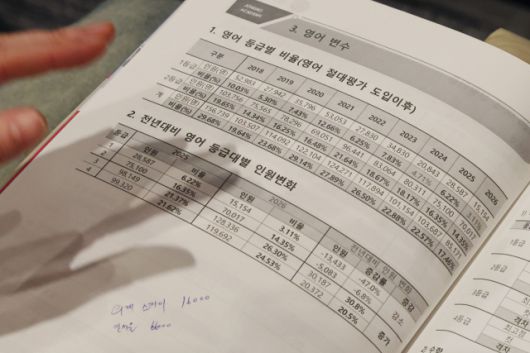 JONGRO
ACADEMY
3. 영어 변수
1. 영어 등급별 비율(영어 절대평가 도입이후)
구분 2018 2019 2020 2021 2022 2023 2024 2025 2026
1등급 인원(명) 52,983 27,942 35,796 53,053 27,830 34,830 20,843 28,587 15,154
비율(%) 10.03% 5.30% 7.43% 12.66% 6.25% 7.83% 4.71% 6.22% 3.11%
2등급 인원(명) 103,756 75,565 78,296 69,051 96,441 83,064 80,311 75,100 70,017
비율(%) 19.65% 14.34% 16.25% 16.48% 21.64% 18.67% 18.17% 16.35% 14.35%
계 인원(명) 156,739 103,507 114,092 122,104 124,271 117,894 101,154 103,687 85,171
비율(%) 29.68% 19.64% 23.68% 29.14% 27.89% 26.50% 22.88% 22.57% 17.46%
2. 전년대비 영어 등급대별 인원변화
등급 2025 2026 전년대비 인원 변화
인원 비율 인원 비율 인원 증감률 증감
1 28,587 6.22% 15,154 3.11% -13,433 -47.0% 감소
2 75,100 16.35% 70,017 14.35% -5,083 -6.8%
3 98,149 21.37% 128,336 26.30% 30,187 30.8% 증가
4 99,320 21.62% 119,692 24.53% 20,372 20.5%
1등급
2등급
3등급
2 수학